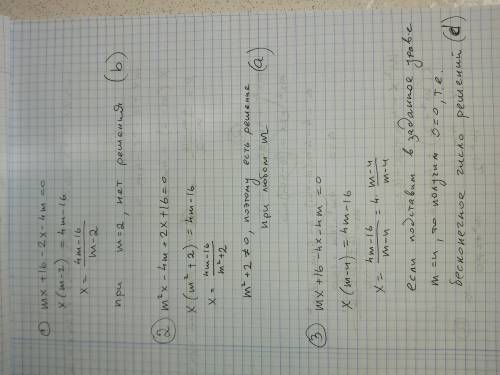 ① mx+16-2x-4m=0
x(m-2) = 4m-16
x = \frac{4m-16}{m-2}
при m=2, нет решения (b)
② m²x-4m+2x+16=0
x(m²+2) = 4m-16
x = \frac{4m-16}{m²+2}
m²+2≠0, поэтому есть решение
при любом m (a)
③ mx+16-4x-4m=0
x(m-4) = 4m-16
x = \frac{4m-16}{m-4} = 4·\frac{m-4}{m-4}
если подставим в заданное урав-е
m=4, то получим 0=0, т.е.
бесконечное число решений (d)